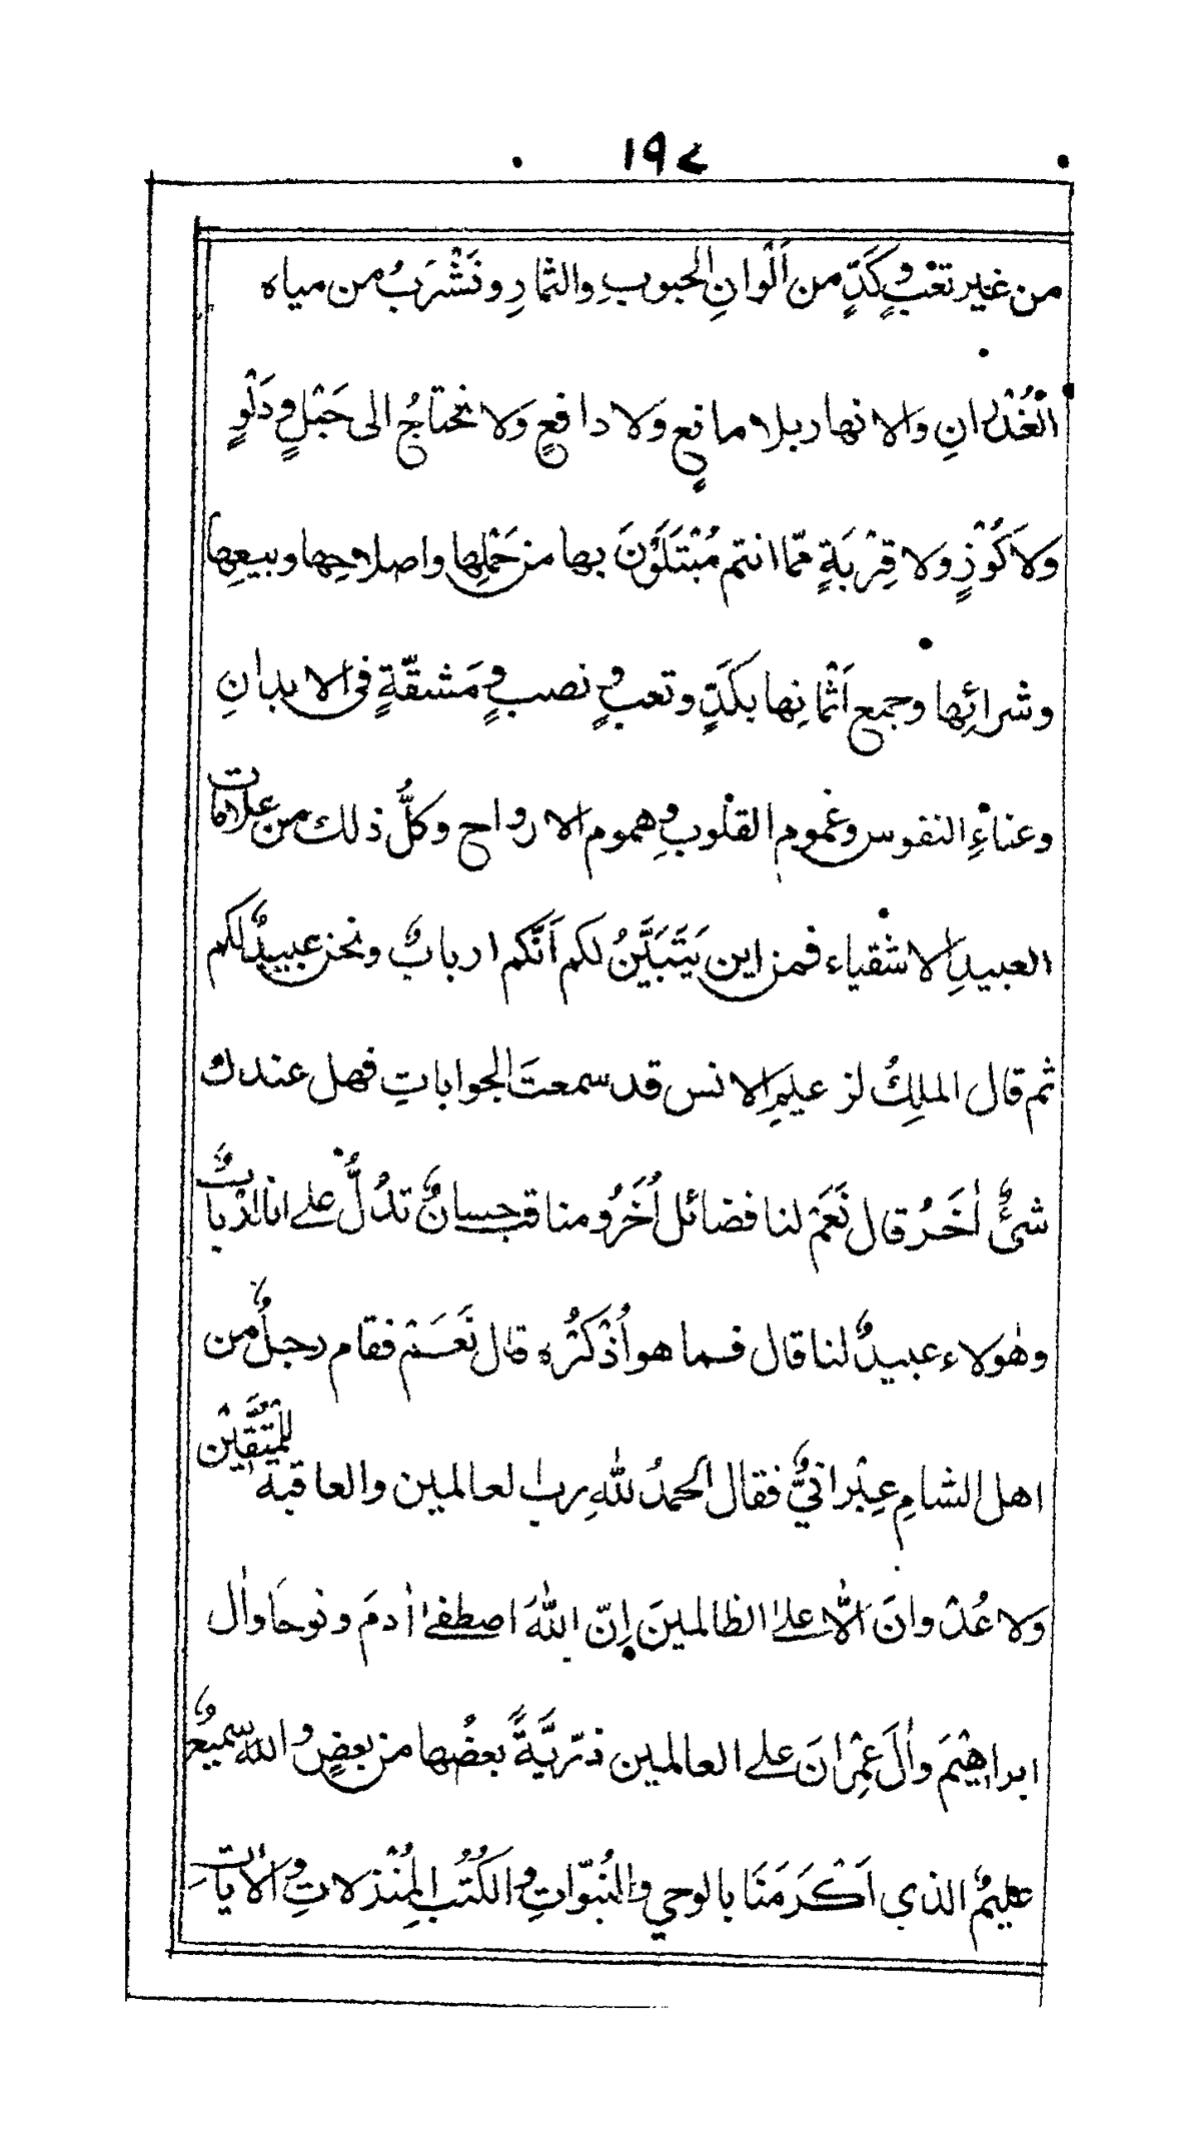 ١٩٧
من غير تعبٍ وكَدٍّ من اَلْوانِ الحبوبِ والثمارِ ونَشْرَبُ من مياه
الْغُدْرانِ والانهار بلا مانعٍ وَلا دافعٍ وَلا نحتاجُ الى حَبْلٍ ودَلْوٍ
وَلاَ كُوْزٍ وَلا قِرْبَةٍ ممّا انتم مُبْتَلَوْنَ بها من حَمْلِها واصلاحِها وبيعِها
وشرائِها وجمع اَثمانِها بكَدٍّ وتعبٍ ونصبٍ ومَشقّةٍ فى الابدانِ
وعناءِ النفوس وغموم القلوبِ وهموم الارواح وكلُّ ذلك من علامات
العبيدِ الاشقياء فمن اين يَتَبَيَّنُ لكم اَنّكم اربابٌ ونحن عبيدٌ لكم
ثم قال الملِكُ لزعيمِ الانس قد سمعتَ الجواباتِ فهل عندك
شئٌ اٰخَرُ قال نَعَمْ لنا فضائل اُخَرُ ومناقب حسانٌ تدُلُّ على انا اربابٌ
وهٰولاء عبيدٌ لنا قال فما هو اُذْكُرْه قال نَعَمْ فقام رجلٌ من
اهل الشامِ عِبْرانيٌّ فقال اَلحمدُ للهِ ربّ العالمين والعاقبة للمُتَّقِيْن
وَلا عُدْوانَ اَلّا على الظالمينَ اِنّ اللهَ اصطفىٰ اٰدمَ ونوحَا واٰل
ابراهِيْمَ واٰلَ عِمْرانَ على العالمين ذرّيَّةً بعضُها من بعضٍ واللهُ سميعٌ
عليمٌ الذي اَكْرَمَنَا بالوحي والنُبوّاتِ والكُتُبِ المُنْزلاتِ والاٰيات